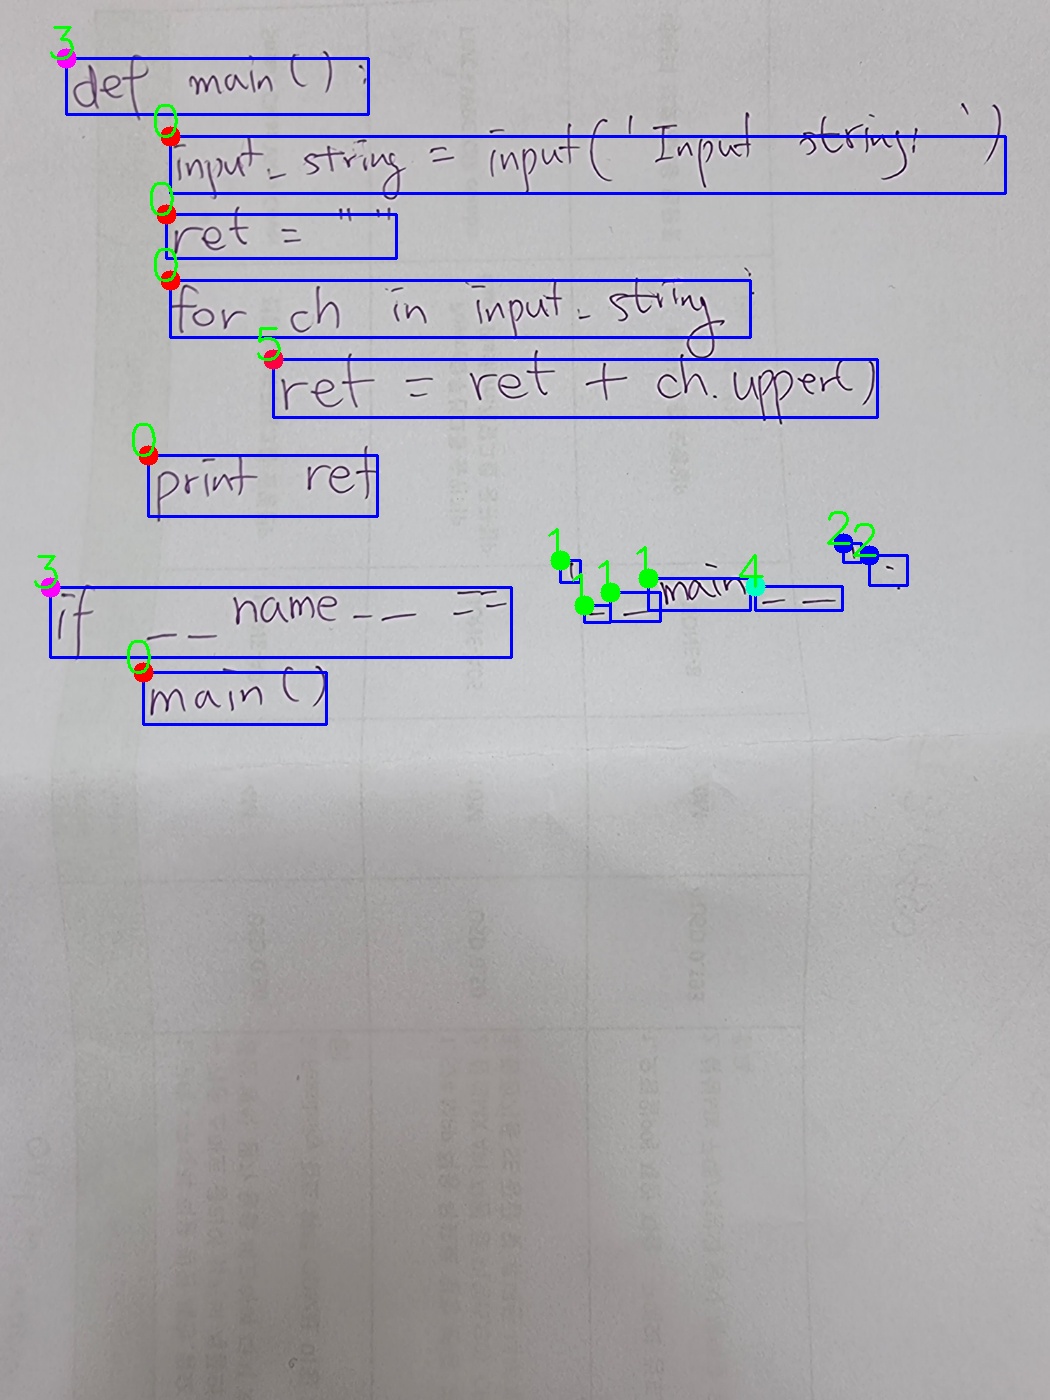 def main():
input_string = input('Input string: ')
ret = ""
for ch in input_string:
ret = ret + ch.upper()
print ret
if __name__ == '__main__':
main()
3
0
0
0
5
0
3
1
1
1
1
4
2
2
0